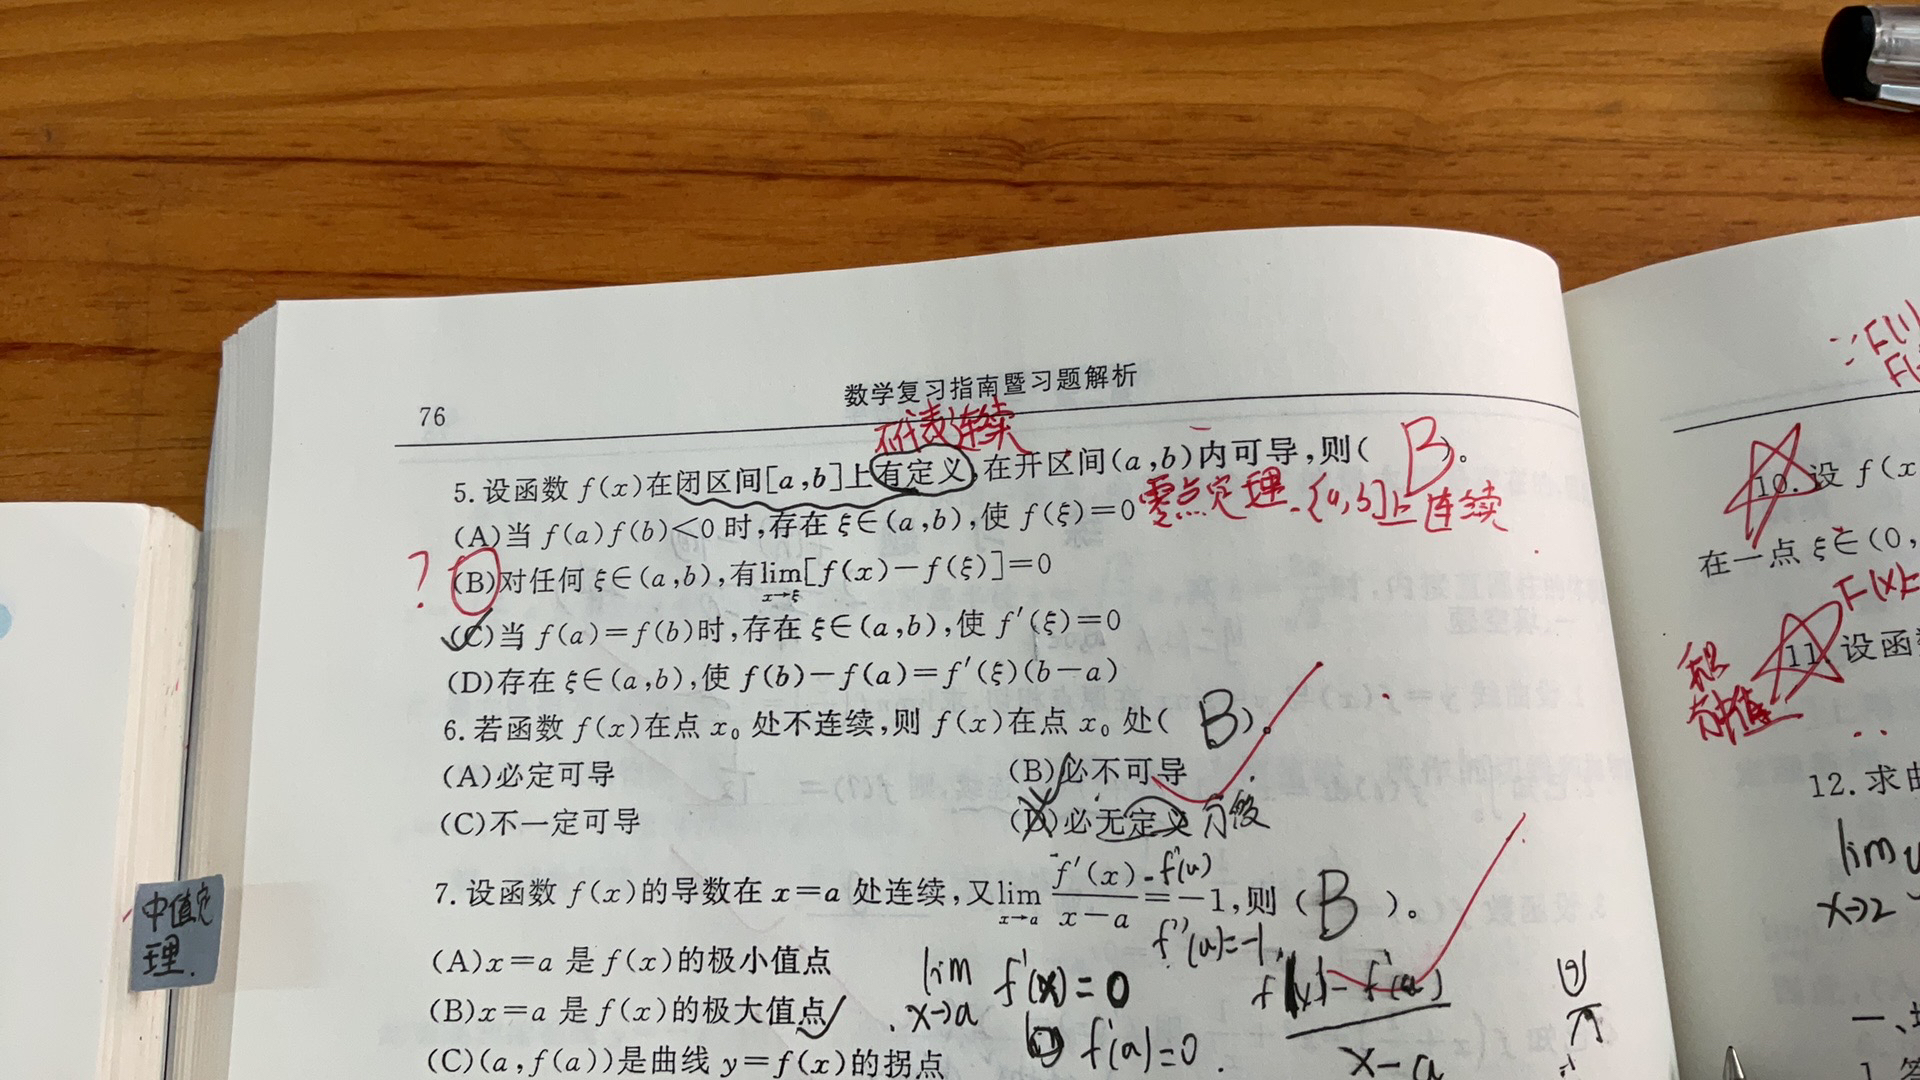 数学复习指南暨习题解析
76
不代表连续
5. 设函数 f(x)在闭区间[a,b]上有定义,在开区间(a,b)内可导,则( B )。
(A)当 f(a)f(b)<0 时,存在 ξ∈(a,b),使 f(ξ)=0 零点定理-[a,b]上连续
? (B)对任何 ξ∈(a,b),有lim[f(x)-f(ξ)]=0
x→ξ
(C)当 f(a)=f(b)时,存在 ξ∈(a,b),使 f′(ξ)=0
(D)存在 ξ∈(a,b),使 f(b)-f(a)=f′(ξ)(b-a)
6. 若函数 f(x)在点 x₀ 处不连续,则 f(x)在点 x₀ 处( B )。
(A)必定可导 (B)必不可导
(C)不一定可导 (D)必无定义 分段
7. 设函数 f(x)的导数在 x=a 处连续,又lim f′(x)-f′(a) / x-a =-1,则( B )。
x→a
f″(a)=-1,
(A)x=a 是 f(x)的极小值点
lim f′(x)=0
x→a
(B)x=a 是 f(x)的极大值点
f′(a)=0.
x-a
(C)(a,f(a))是曲线 y=f(x)的拐点
中值定
理.
F(1)
10. 设 f(x
在一点 ξ∈(0,
F(x)=
11. 设函
积
分中值
12. 求
lim
x→2
一、
1.